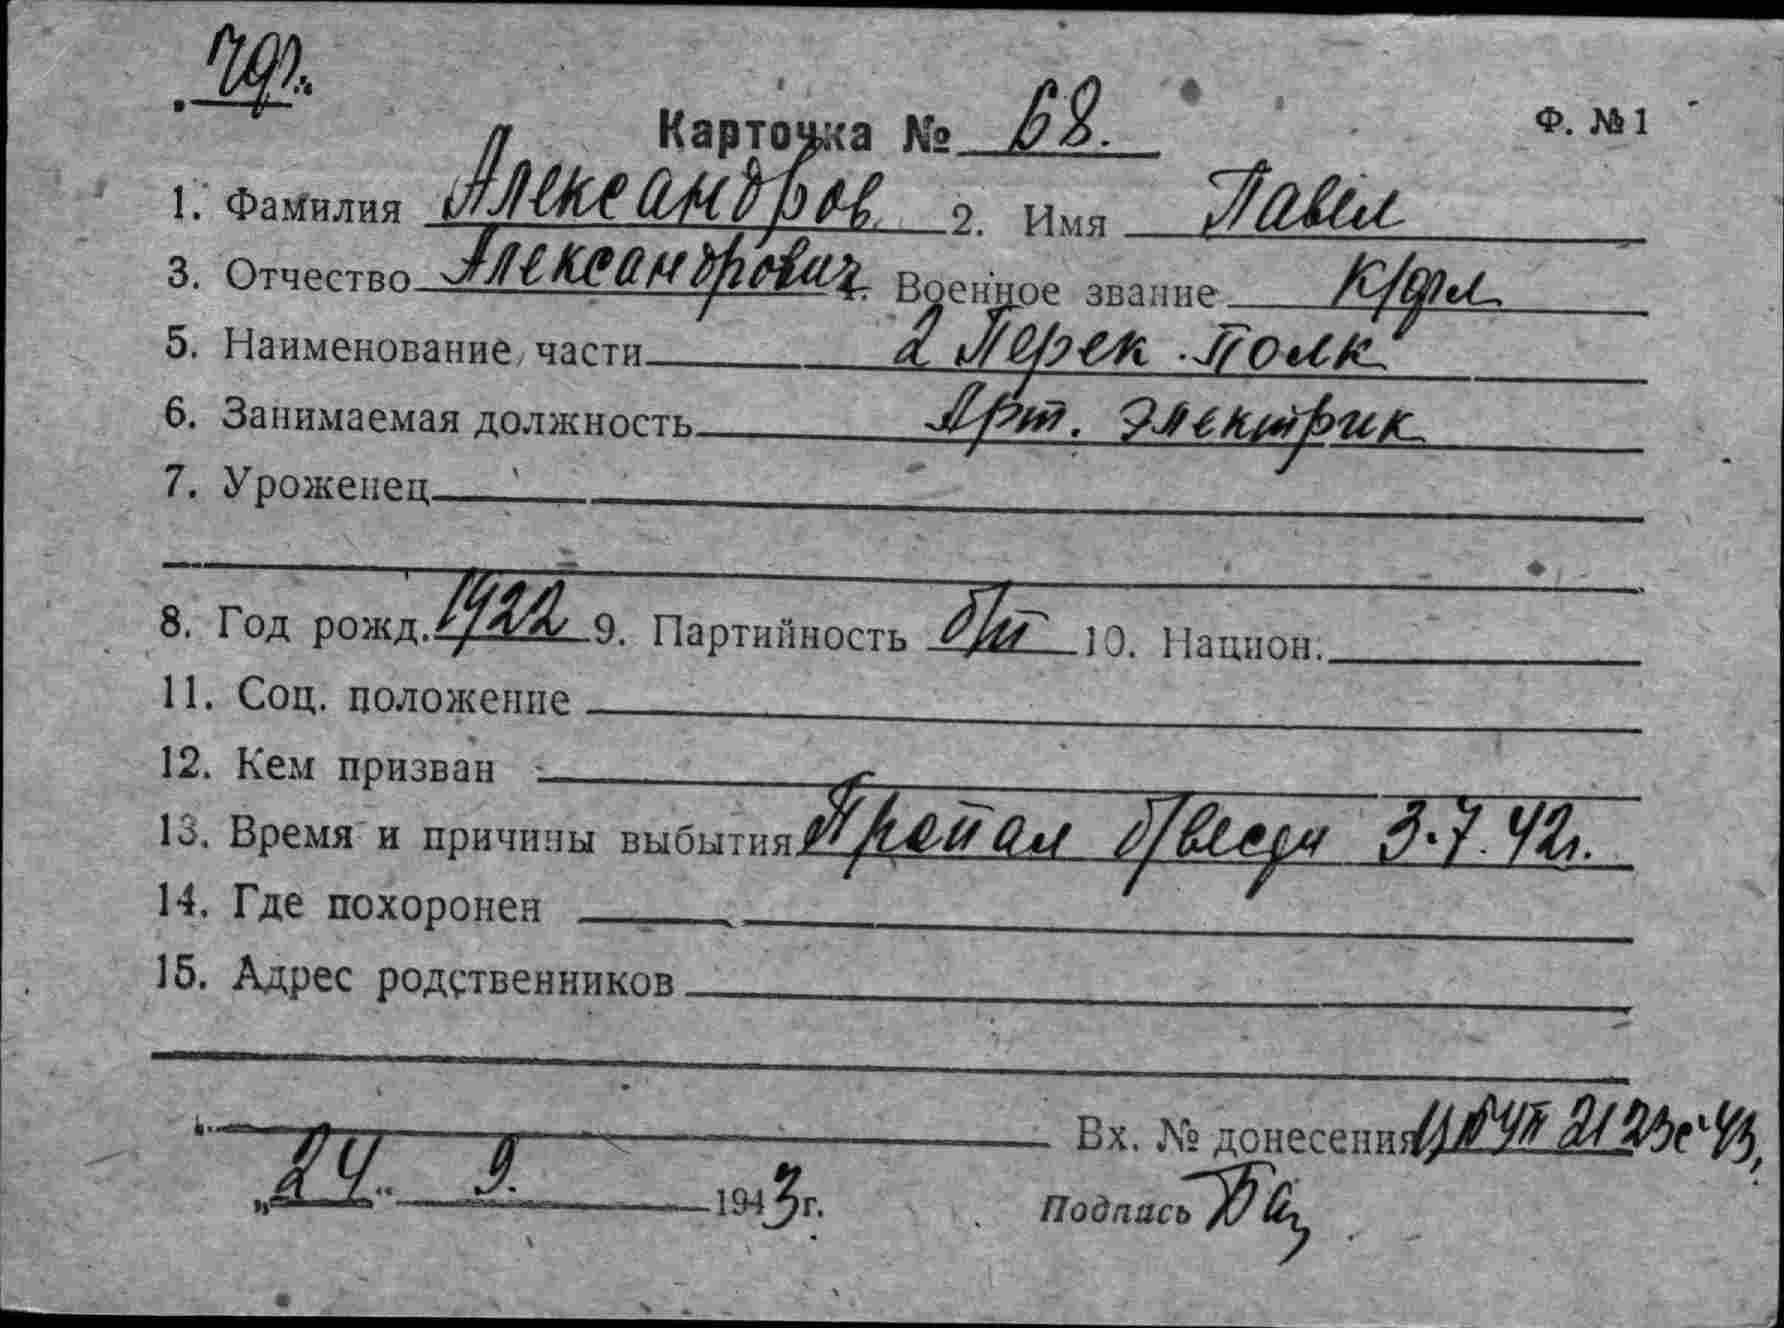 Ф. №1
Карточка № 68.
1. Фамилия Александров 2. Имя Павел
3. Отчество Александрович Военное звание к/фл
5. Наименование части 2 Перек. Полк
6. Занимаемая должность Арт. электрик
7. Уроженец
8. Год рожд. 1922 9. Партийность б/п 10. Национ.
11. Соц. положение
12. Кем призван
13. Время и причины выбытия Пропал б/вести 3.7.42г.
14. Где похоронен
15. Адрес родственников
Вх. № донесения 2123с 43
„24" 9. 1943г. Подпись